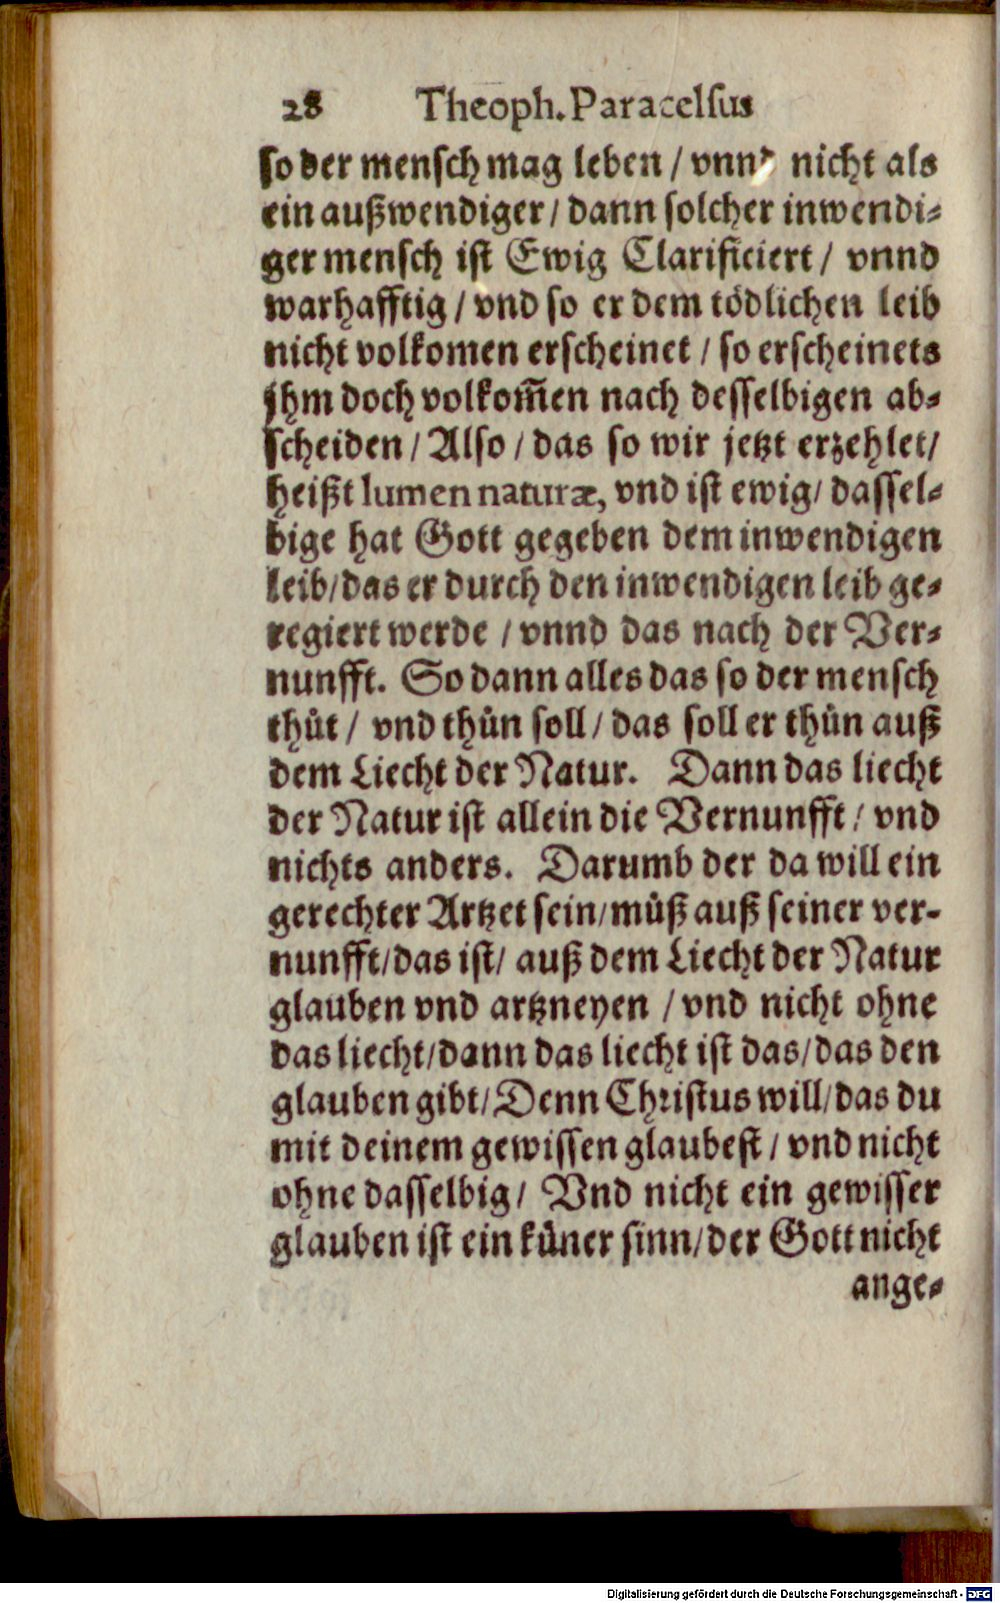 28 Theoph. Paracelsus
so der mensch mag leben / vnnd nicht als
ein außwendiger / dann solcher inwendi⸗
ger mensch ist Ewig Clarificiert / vnnd
warhafftig / vnd so er dem tödlichen leib
nicht volkomen erscheinet / so erscheinets
jhm doch volkom̃en nach desselbigen ab⸗
scheiden / Also / das so wir jetzt erzehlet /
heißt lumen naturæ, vnd ist ewig / dassel⸗
bige hat Gott gegeben dem inwendigen
leib / das er durch den inwendigen leib ge⸗
regiert werde / vnnd das nach der Ver⸗
nunfft. So dann alles das so der mensch
thůt / vnd thůn soll / das soll er thůn auß
dem Liecht der Natur. Dann das liecht
der Natur ist allein die Vernunfft / vnd
nichts anders. Darumb der da will ein
gerechter Artzet sein / můß auß seiner ver-
nunfft / das ist / auß dem Liecht der Natur
glauben vnd artzneyen / vnd nicht ohne
das liecht / dann das liecht ist das / das den
glauben gibt / Denn Christus will / das du
mit deinem gewissen glaubest / vnd nicht
ohne dasselbig / Vnd nicht ein gewisser
glauben ist ein küner sinn / der Gott nicht
ange⸗
Digitalisierung gefördert durch die Deutsche Forschungsgemeinschaft - DFG